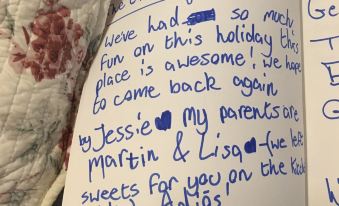 we've had so much
fun on this holiday this
place is awesome! we hope
to come back again
by Jessie my parents are
Martin & Lisa - (we left
sweets for you on the
Adios
Ge